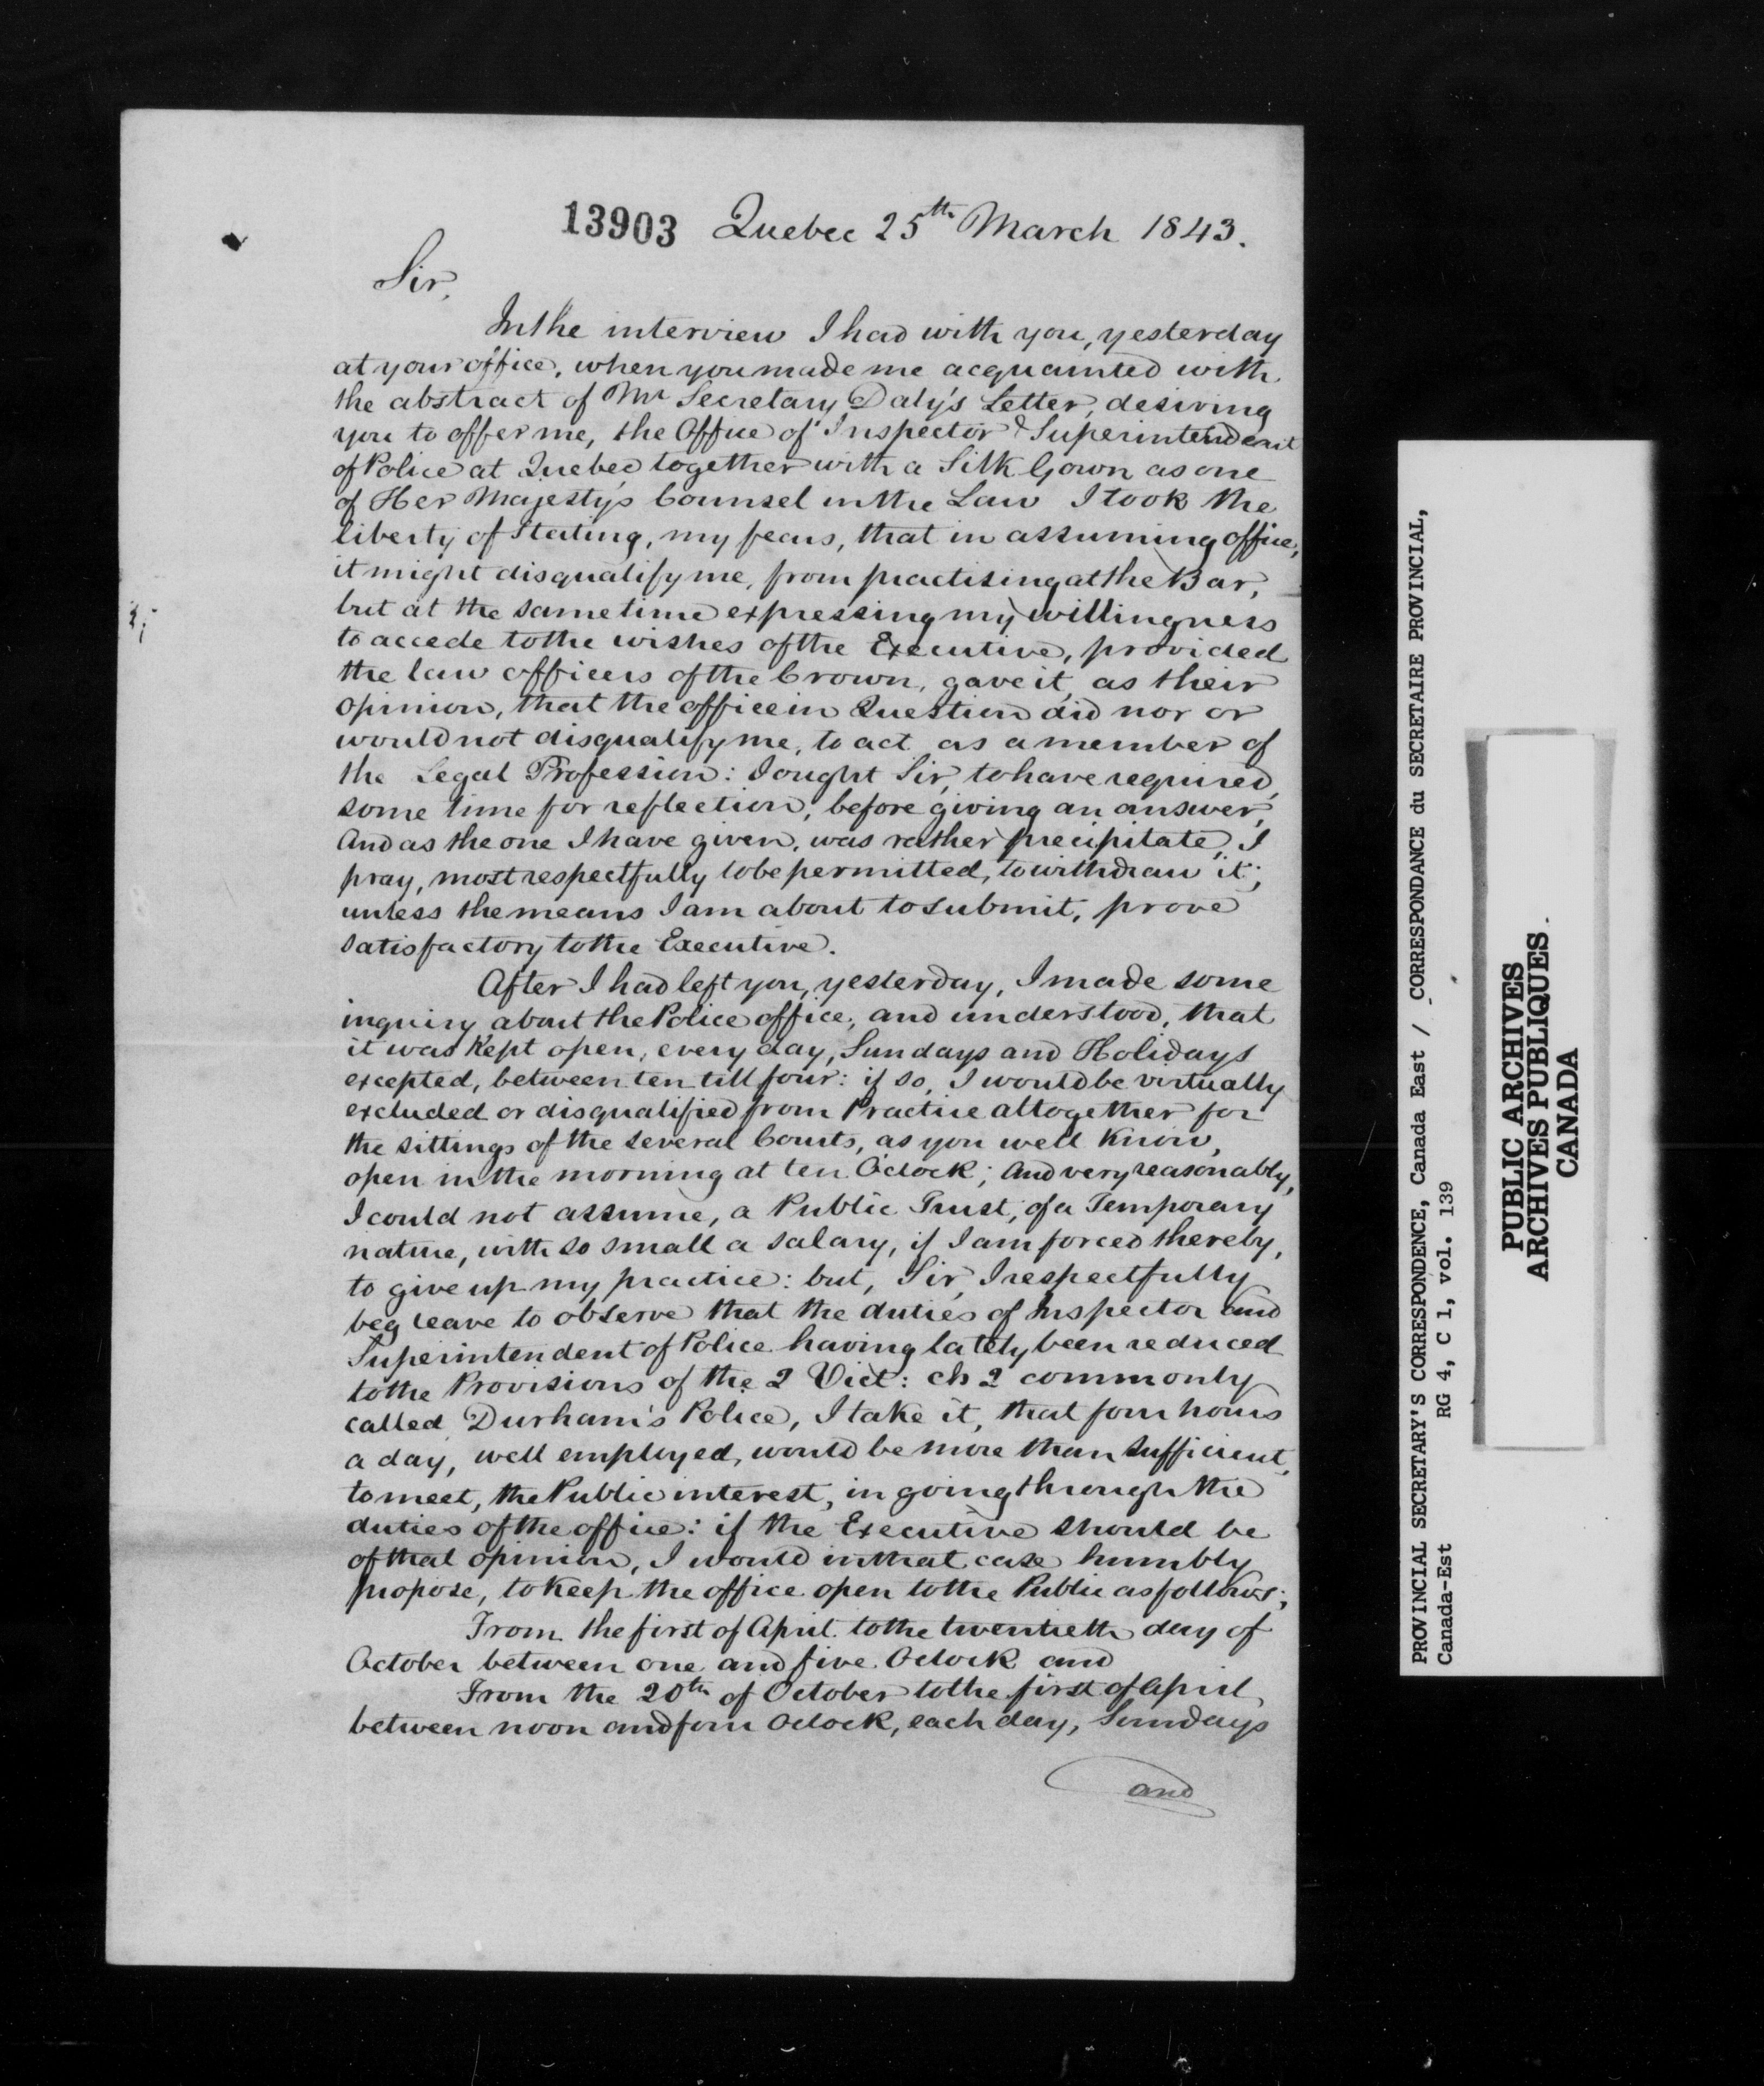 13903 Quebec 25th March 1843.
Sir,
In the interview I had with you, yesterday
at your office, when you made me acquainted with
the abstract of Mr Secretary Daly's Letter, desiring
you to offer me, the Office of Inspector & Superintendent
of Police at Quebec together with a Silk Gown as one
of Her Majesty's Counsel in the Law I took the
liberty of Stating, my fears, that in assuming office,
it might disqualify me, from practising at the Bar,
but at the same time expressing my willingness
to accede to the wishes of the Executive, provided
the law officers of the Crown, gave it, as their
opinion, that the office in Question did nor or
would not disqualify me, to act as a member of
the Legal Profession: I ought Sir, to have required,
some time for reflection, before giving an answer,
And as the one I have given, was rather precipitate, I
pray, most respectfully to be permitted, to withdraw it;
unless the means I am about to submit, prove
satisfactory to the Executive.
After I had left you, yesterday, I made some
inquiry about the Police office, and understood, that
it was kept open, every day, Sundays and Holidays
excepted, between ten till four: if so, I would be virtually
excluded or disqualified from Practice altogether for
the sittings of the several Courts, as you well know,
open in the morning at ten O'clock; And very reasonably,
I could not assume, a Public Trust, of a Temporary
nature, with so small a salary, if I am forced thereby,
to give up my practice: but, Sir, I respectfully
beg leave to observe that the duties of Inspector and
Superintendent of Police having lately been reduced
to the Provisions of the 2 Vict: ch 2 commonly
called Durham's Police, I take it, that four hours
a day, well employed, would be more than sufficient,
to meet, the Public interest, in going through the
duties of the office: if the Executive should be
of that opinion, I would in that case humbly
propose, to keep the office open to the Public as follows;
From the first of April to the twentieth day of
October between one and five Oclock and
From the 20th of October to the first of April
between noon and four Oclock, each day, Sundays
and
PROVINCIAL SECRETARY'S CORRESPONDENCE, Canada East / CORRESPONDANCE du SECRETAIRE PROVINCIAL,
Canada-Est RG 4, C 1, vol. 139
PUBLIC ARCHIVES
ARCHIVES PUBLIQUES
CANADA